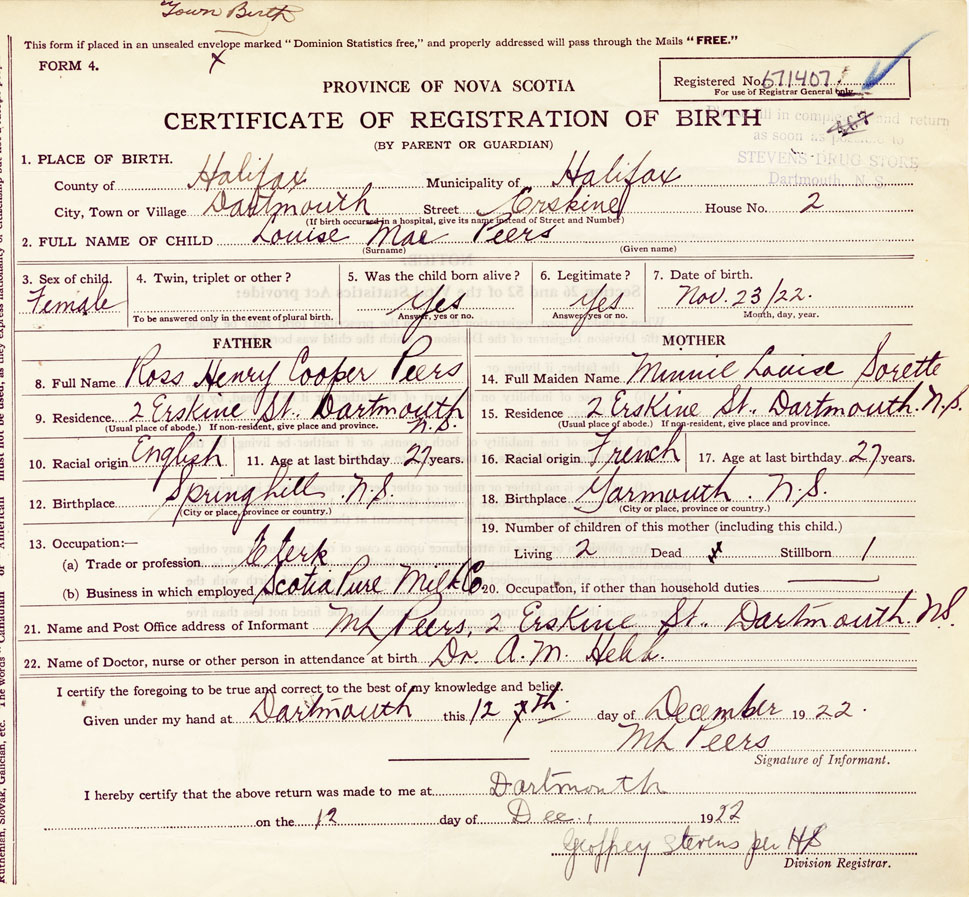 Town Birth
This form if placed in an unsealed envelope marked "Dominion Statistics free," and properly addressed will pass through the Mails "FREE."
FORM 4. X
PROVINCE OF NOVA SCOTIA
Registered No. 671407
For use of Registrar General only.
CERTIFICATE OF REGISTRATION OF BIRTH
(BY PARENT OR GUARDIAN)
fill in complete and return
as soon as possible to
STEVENS DRUG STORE,
Dartmouth, N. S.
1. PLACE OF BIRTH.
County of Halifax Municipality of Halifax
City, Town or Village Dartmouth Street Erskine House No. 2
(If birth occurred in a hospital, give its name instead of Street and Number)
2. FULL NAME OF CHILD Louise Mae Peers
(Surname) (Given name)
3. Sex of child. 4. Twin, triplet or other? 5. Was the child born alive? 6. Legitimate? 7. Date of birth.
Female Yes Yes Nov. 23/22.
To be answered only in the event of plural birth. Answer, yes or no. Answer, yes or no. Month, day, year.
FATHER MOTHER
8. Full Name Ross Henry Cooper Peers 14. Full Maiden Name Minnie Louise Sorette
9. Residence 2 Erskine St. Dartmouth N.S. 15. Residence 2 Erskine St. Dartmouth. N.S.
(Usual place of abode.) If non-resident, give place and province. (Usual place of abode.) If non-resident, give place and province.
10. Racial origin English 11. Age at last birthday 27 years. 16. Racial origin French 17. Age at last birthday 27 years.
12. Birthplace Springhill. N.S. 18. Birthplace Yarmouth. N.S.
(City or place, province or country.) (City or place, province or country.)
13. Occupation:— 19. Number of children of this mother (including this child.)
(a) Trade or profession Clerk Living 2 Dead Stillborn 1
(b) Business in which employed Scotia Pure Milk Co. 20. Occupation, if other than household duties
21. Name and Post Office address of Informant ML Peers, 2 Erskine St. Dartmouth. N.S.
22. Name of Doctor, nurse or other person in attendance at birth Dr. A. M. Hebb.
I certify the foregoing to be true and correct to the best of my knowledge and belief.
Given under my hand at Dartmouth this 12 th. day of December 1922.
ML Peers
Signature of Informant.
I hereby certify that the above return was made to me at Dartmouth
on the 12 day of Dec. 1922
Geoffrey Stevens per HS
Division Registrar.